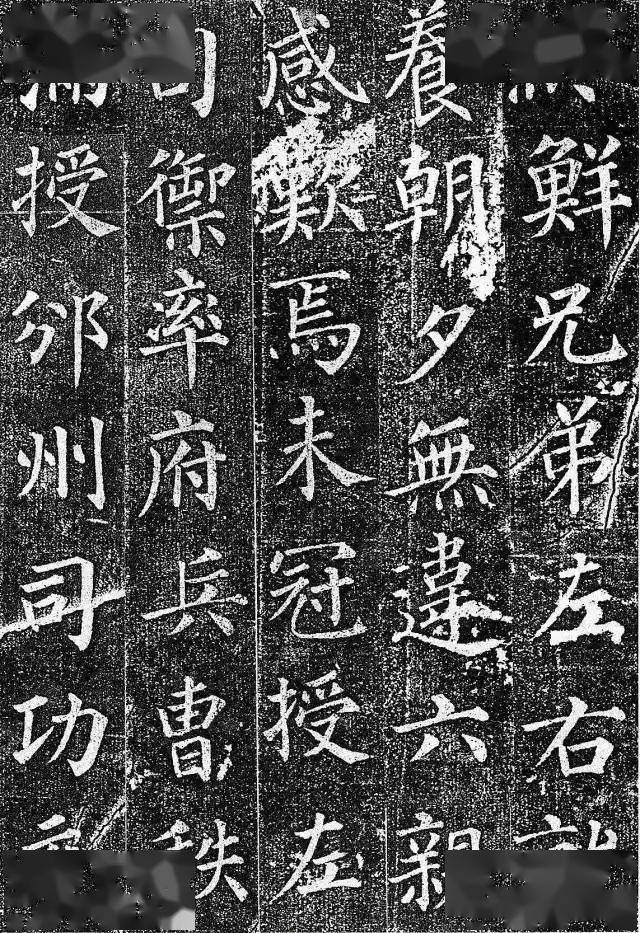 鮮兄弟左右就
養朝夕無違六親
感歎焉未冠授左
司禦率府兵曹秩
滿授邠州司功